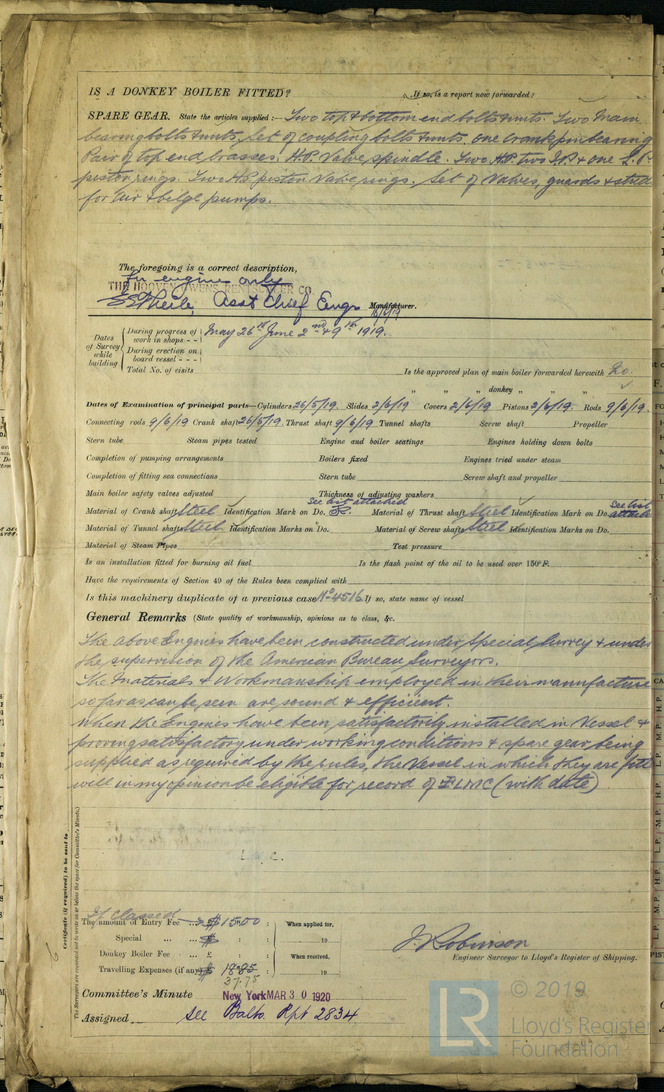 IS A DONKEY BOILER FITTED? If so, is a report now forwarded?
SPARE GEAR. State the articles supplied:— Two top & bottom end bolts & nuts. Two Main
bearing bolts & nuts, Set of coupling bolts & nuts, one crank pin bearing
Pair of top end brasses. H.P. Valve spindle. Two H.P. two I.P. & one L.P.
piston rings. Two H.P. piston Valve rings. Set of Valves, guards & studs
for air & belge pumps.
The foregoing is a correct description,
For engine only
THE HOOVEN OWENS RENTSCHLER CO
Asst Chief Engr Manufacturer.
Dates of Survey while building
During progress of work in shops - - May 26th June 2nd & 9th 1919.
During erection on board vessel - - -
Total No. of visits Is the approved plan of main boiler forwarded herewith No.
" " " donkey " " "
Dates of Examination of principal parts—Cylinders 26/5/19. Slides 2/6/19 Covers 2/6/19 Pistons 2/6/19. Rods 9/6/19.
Connecting rods 9/6/19 Crank shaft 26/5/19. Thrust shaft 9/6/19 Tunnel shafts Screw shaft Propeller
Stern tube Steam pipes tested Engine and boiler seatings Engines holding down bolts
Completion of pumping arrangements Boilers fixed Engines tried under steam
Completion of fitting sea connections Stern tube Screw shaft and propeller
Main boiler safety valves adjusted Thickness of adjusting washers
See list attached
Material of Crank shaft Steel Identification Mark on Do. Material of Thrust shaft Steel Identification Mark on Do. See list attached
Material of Tunnel shafts Steel Identification Marks on Do. Material of Screw shafts Steel Identification Marks on Do.
Material of Steam Pipes Test pressure
Is an installation fitted for burning oil fuel Is the flash point of the oil to be used over 150°F.
Have the requirements of Section 49 of the Rules been complied with
Is this machinery duplicate of a previous case No 4516 If so, state name of vessel
General Remarks (State quality of workmanship, opinions as to class, &c.
The above Engines have been constructed under Special Survey & under
the supervision of the American Bureau Surveyors.
The materials & Workmanship employed in their manufacture
so far as can be seen are sound & efficient.
When the Engines have been satisfactorily installed in Vessel &
proving satisfactory under working conditions & spare gear being
supplied as required by the rules, the Vessel in which they are fitted
will in my opinion be eligible for record of LMC (with date)
Certificate (if required) to be sent to
(The Surveyors are requested not to write on or below the space for Committee's Minute.)
If classed
The amount of Entry Fee $ 15.00 : When applied for,
Special ... ... $ : 19
Donkey Boiler Fee £ : When received,
Travelling Expenses (if any) $ 18.85 : 19
37.75
J. Robinson
Engineer Surveyor to Lloyd's Register of Shipping.
Committee's Minute New York MAR 30 1920
Assigned See Balto. Rpt 2834
© 2019
LR
Lloyd's Register
Foundation